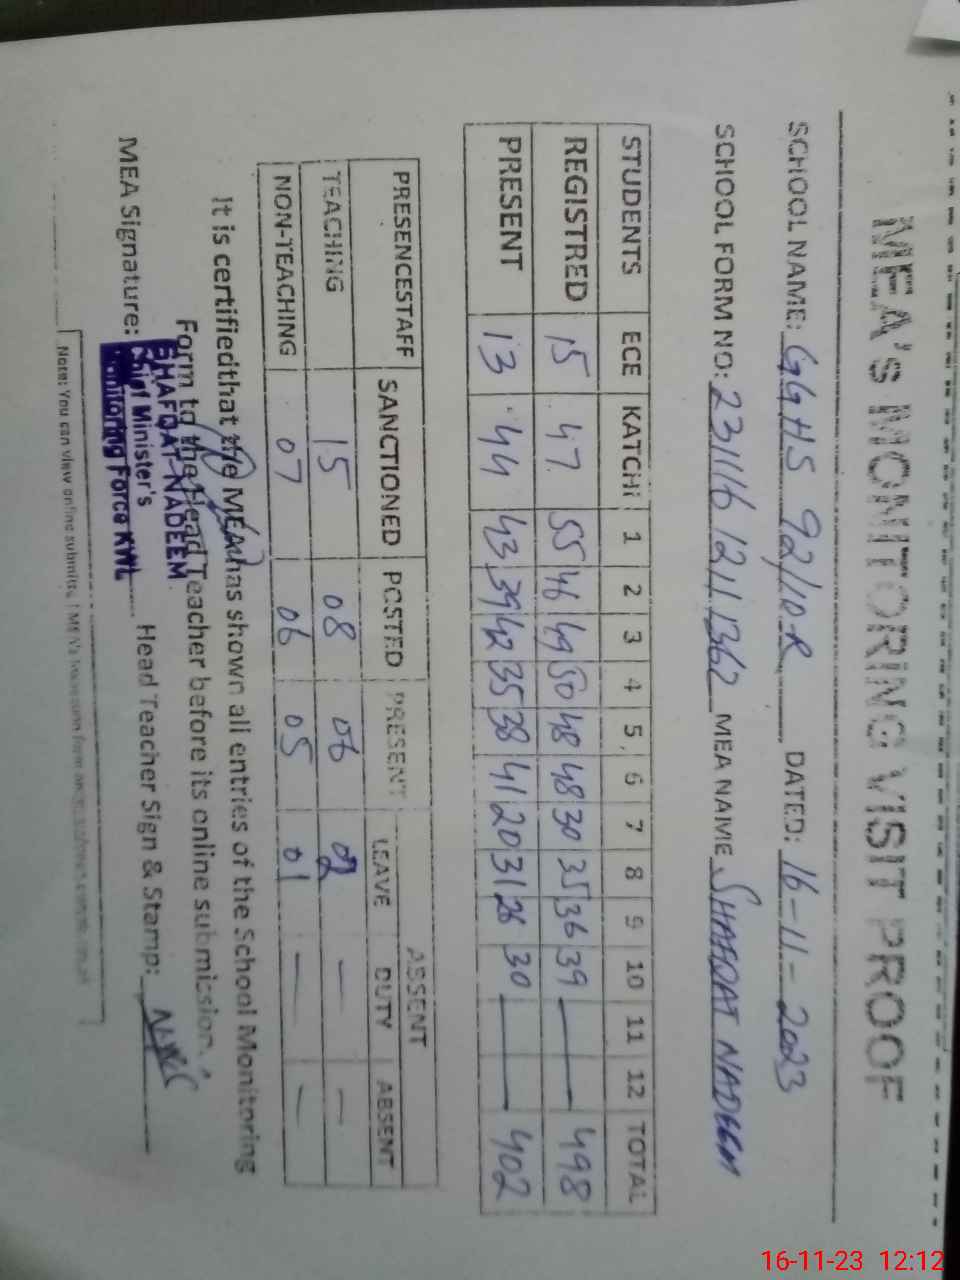 MEA'S MONITORING VISIT PROOF
SCHOOL NAME: GGHS 92/10-R DATED: 16-11-2023
SCHOOL FORM NO: 231116 1211 1362 MEA NAME SHAFQAT NADEEM
STUDENTS ECE KATCHI 1 2 3 4 5 6 7 8 9 10 11 12 TOTAL
REGISTRED 15 47 55 46 49 50 48 48 30 35 36 39 — — 498
PRESENT 13 44 43 39 42 35 38 41 20 31 26 30 — — 402
ABSENT
PRESENCESTAFF SANCTIONED POSTED PRESENT LEAVE DUTY ABSENT
TEACHING 15 08 06 02 — —
NON-TEACHING 07 06 05 01 — —
It is certifiedthat the MEA has shown all entries of the School Monitoring
Form to the Head Teacher before its online submission.
MEA Signature: Head Teacher Sign & Stamp:
SHAFQAT NADEEM
Chief Minister's
Monitoring Force KWL
Note: You can view online submitted MEA's
16-11-23 12:12